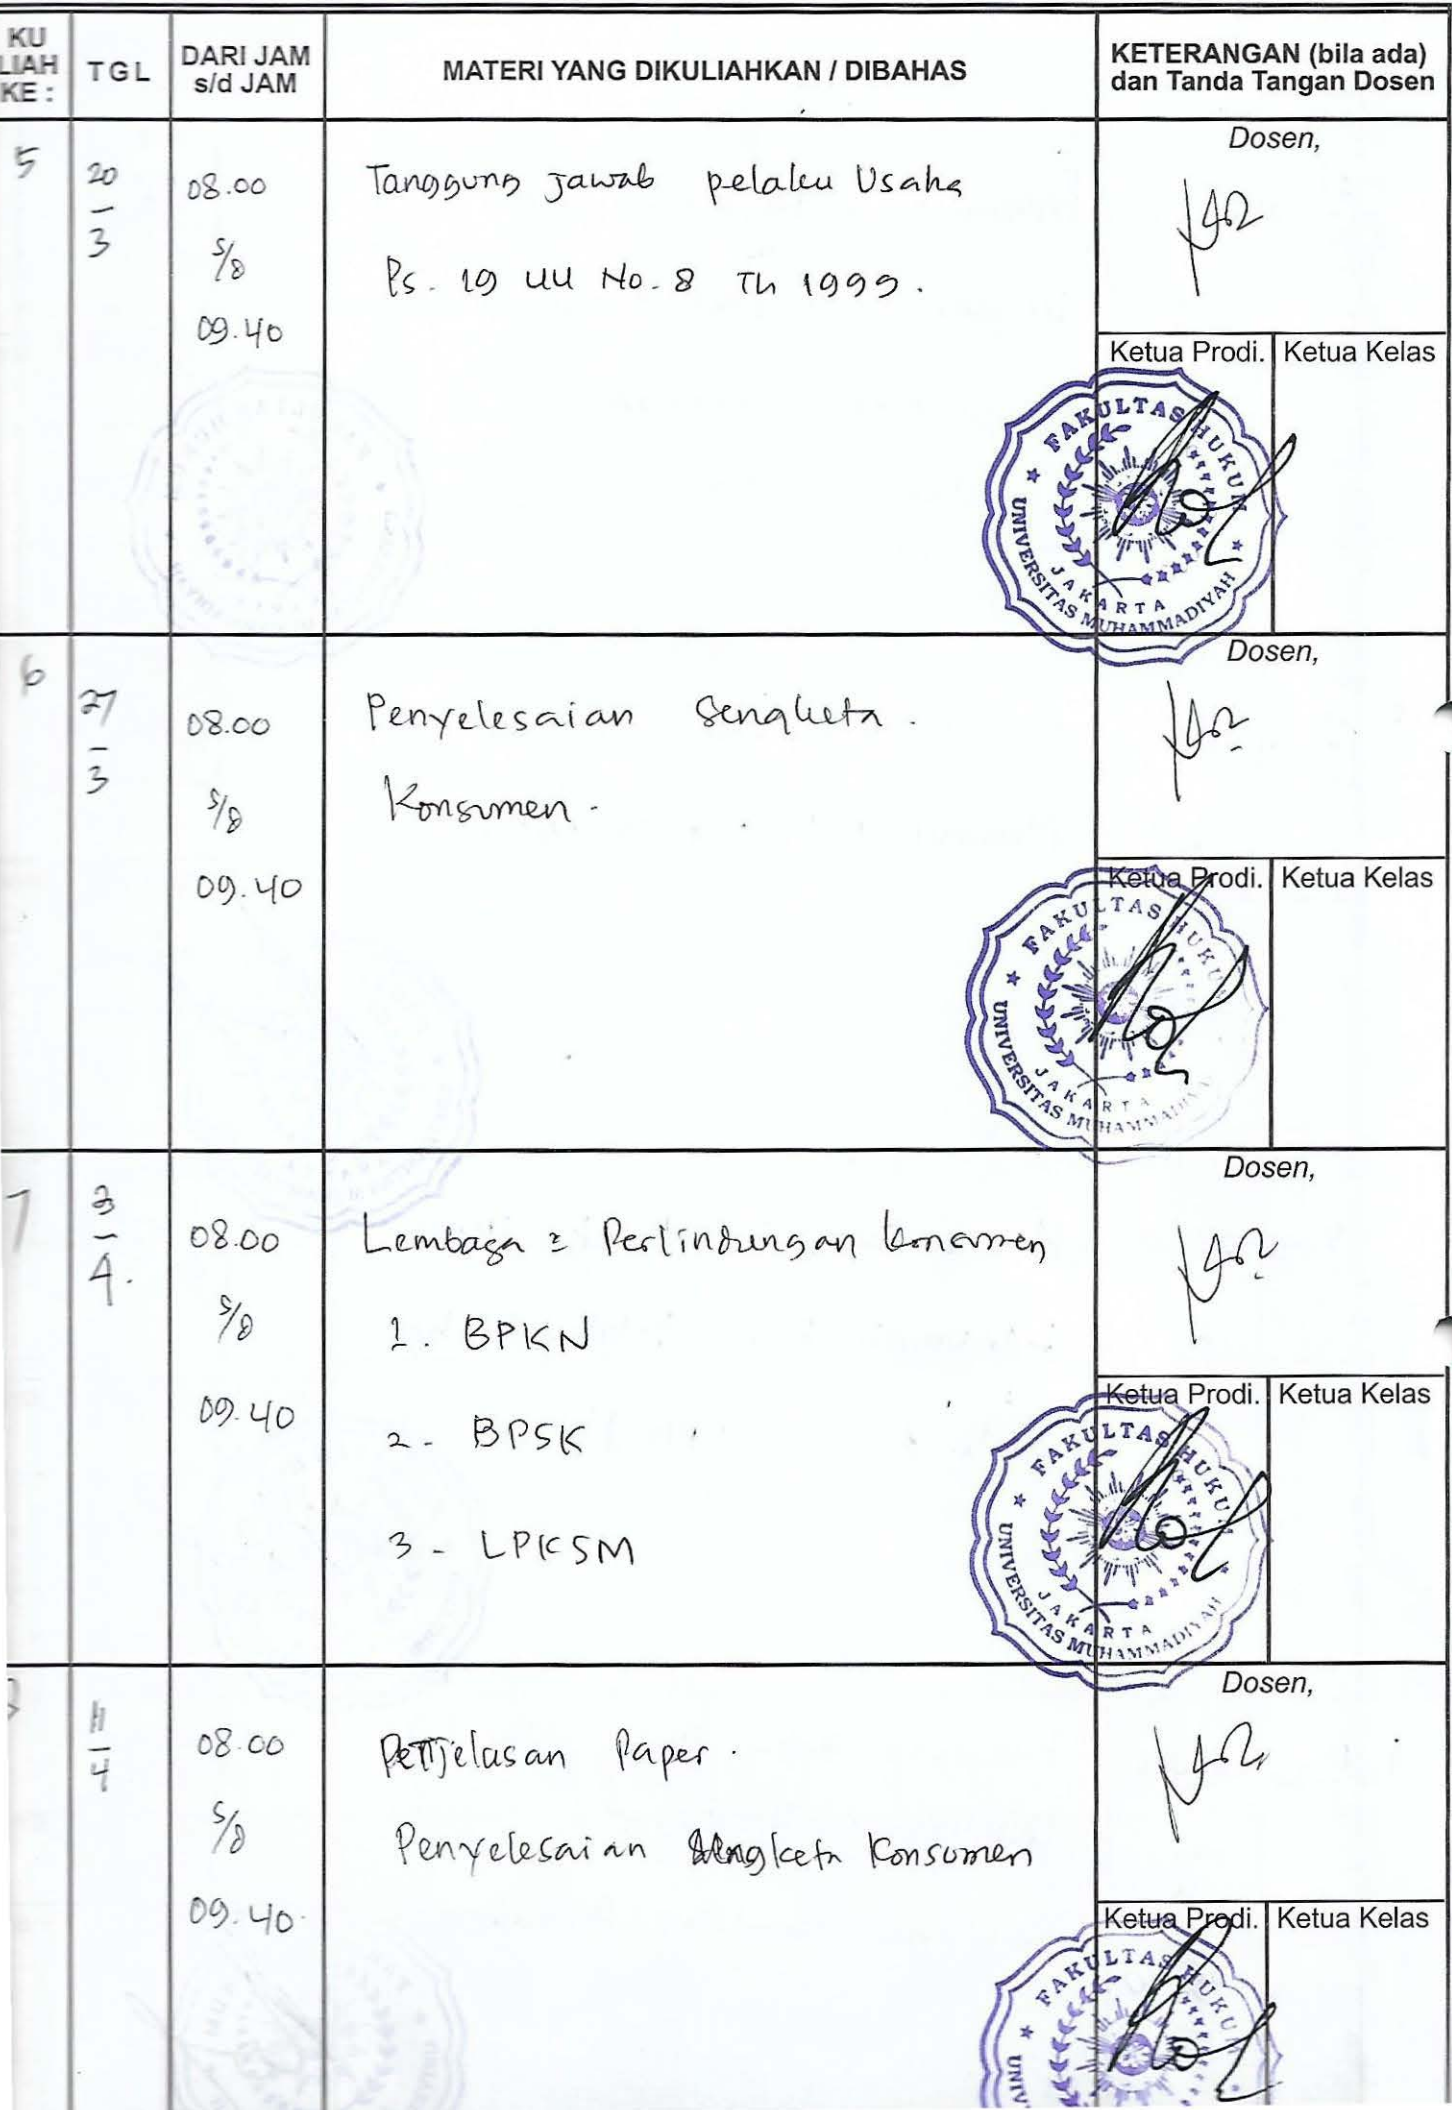 KU
LIAH
KE :
TGL
DARI JAM
s/d JAM
MATERI YANG DIKULIAHKAN / DIBAHAS
KETERANGAN (bila ada)
dan Tanda Tangan Dosen
5
20
3
08.00
s/d
09.40
Tanggung jawab pelaku Usaha
Ps. 19 UU No. 8 Th 1999.
Dosen,
Ketua Prodi.
Ketua Kelas
FAKULTAS HUKUM
UNIVERSITAS MUHAMMADIYAH
JAKARTA
6
27
3
08.00
s/d
09.40
Penyelesaian Sengketa.
Konsumen.
Dosen,
Ketua Prodi.
Ketua Kelas
FAKULTAS HUKUM
UNIVERSITAS MUHAMMADIYAH
JAKARTA
7
3
4.
08.00
s/d
09.40
Lembaga 2 Perlindungan konsumen
1. BPKN
2. BPSK
3. LPKSM
Dosen,
Ketua Prodi.
Ketua Kelas
FAKULTAS HUKUM
UNIVERSITAS MUHAMMADIYAH
JAKARTA
11
4
08.00
s/d
09.40
Penjelasan Paper.
Penyelesaian Sengketa Konsumen
Dosen,
Ketua Prodi.
Ketua Kelas
FAKULTAS HUKU
UNIV